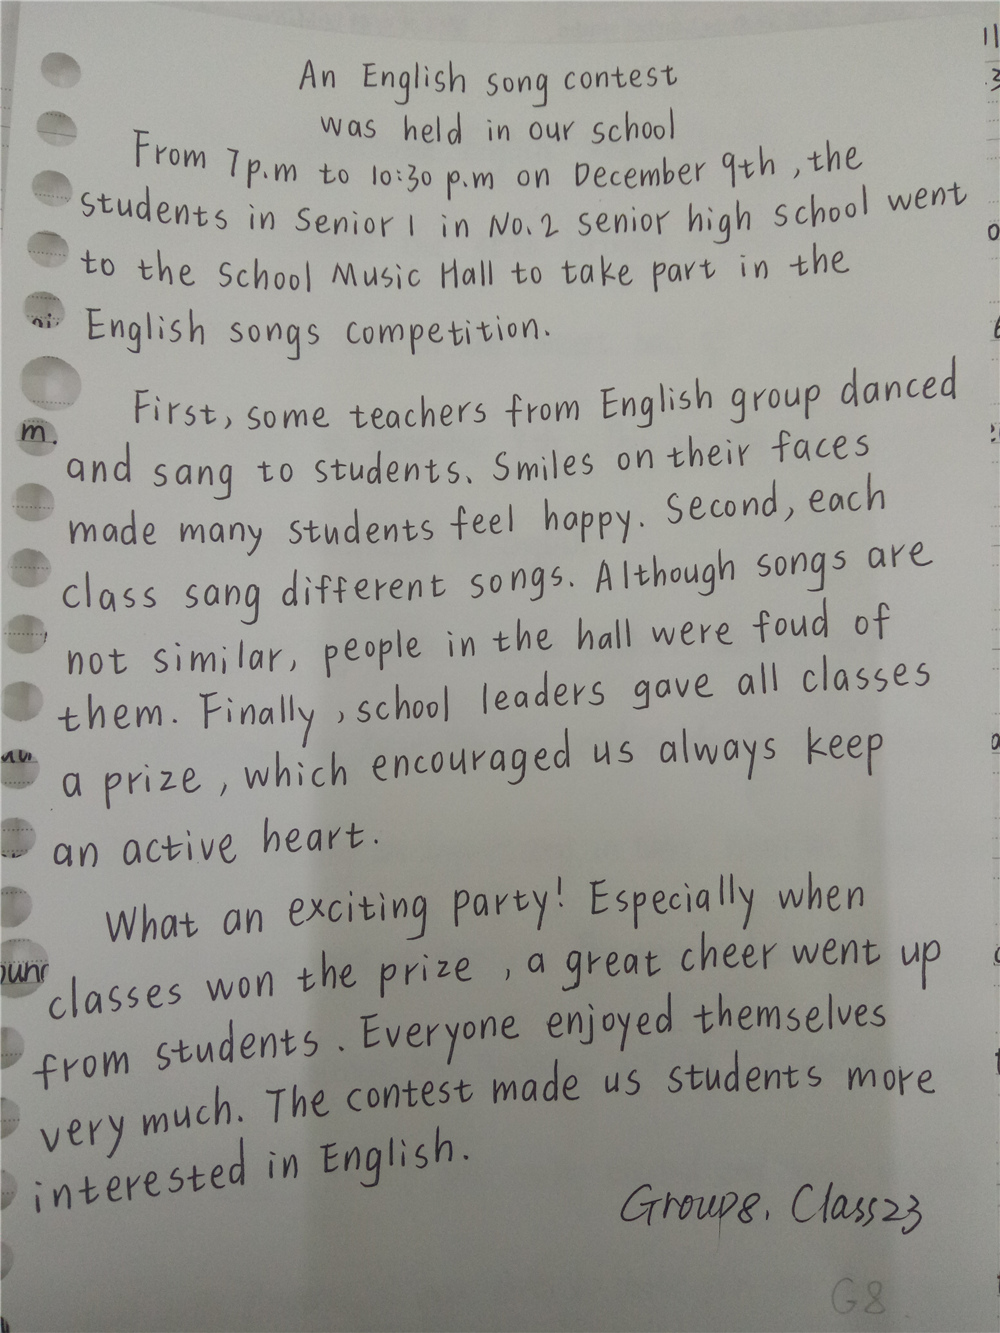 An English song contest
was held in our school
From 7p.m to 10:30 p.m on December 9th, the
students in Senior 1 in No.2 senior high school went
to the School Music Hall to take part in the
English songs competition.
First, some teachers from English group danced
and sang to students. Smiles on their faces
made many students feel happy. Second, each
class sang different songs. Although songs are
not similar, people in the hall were foud of
them. Finally, school leaders gave all classes
a prize, which encouraged us always keep
an active heart.
What an exciting party! Especially when
classes won the prize, a great cheer went up
from students. Everyone enjoyed themselves
very much. The contest made us students more
interested in English.
Group8. Class23
G8